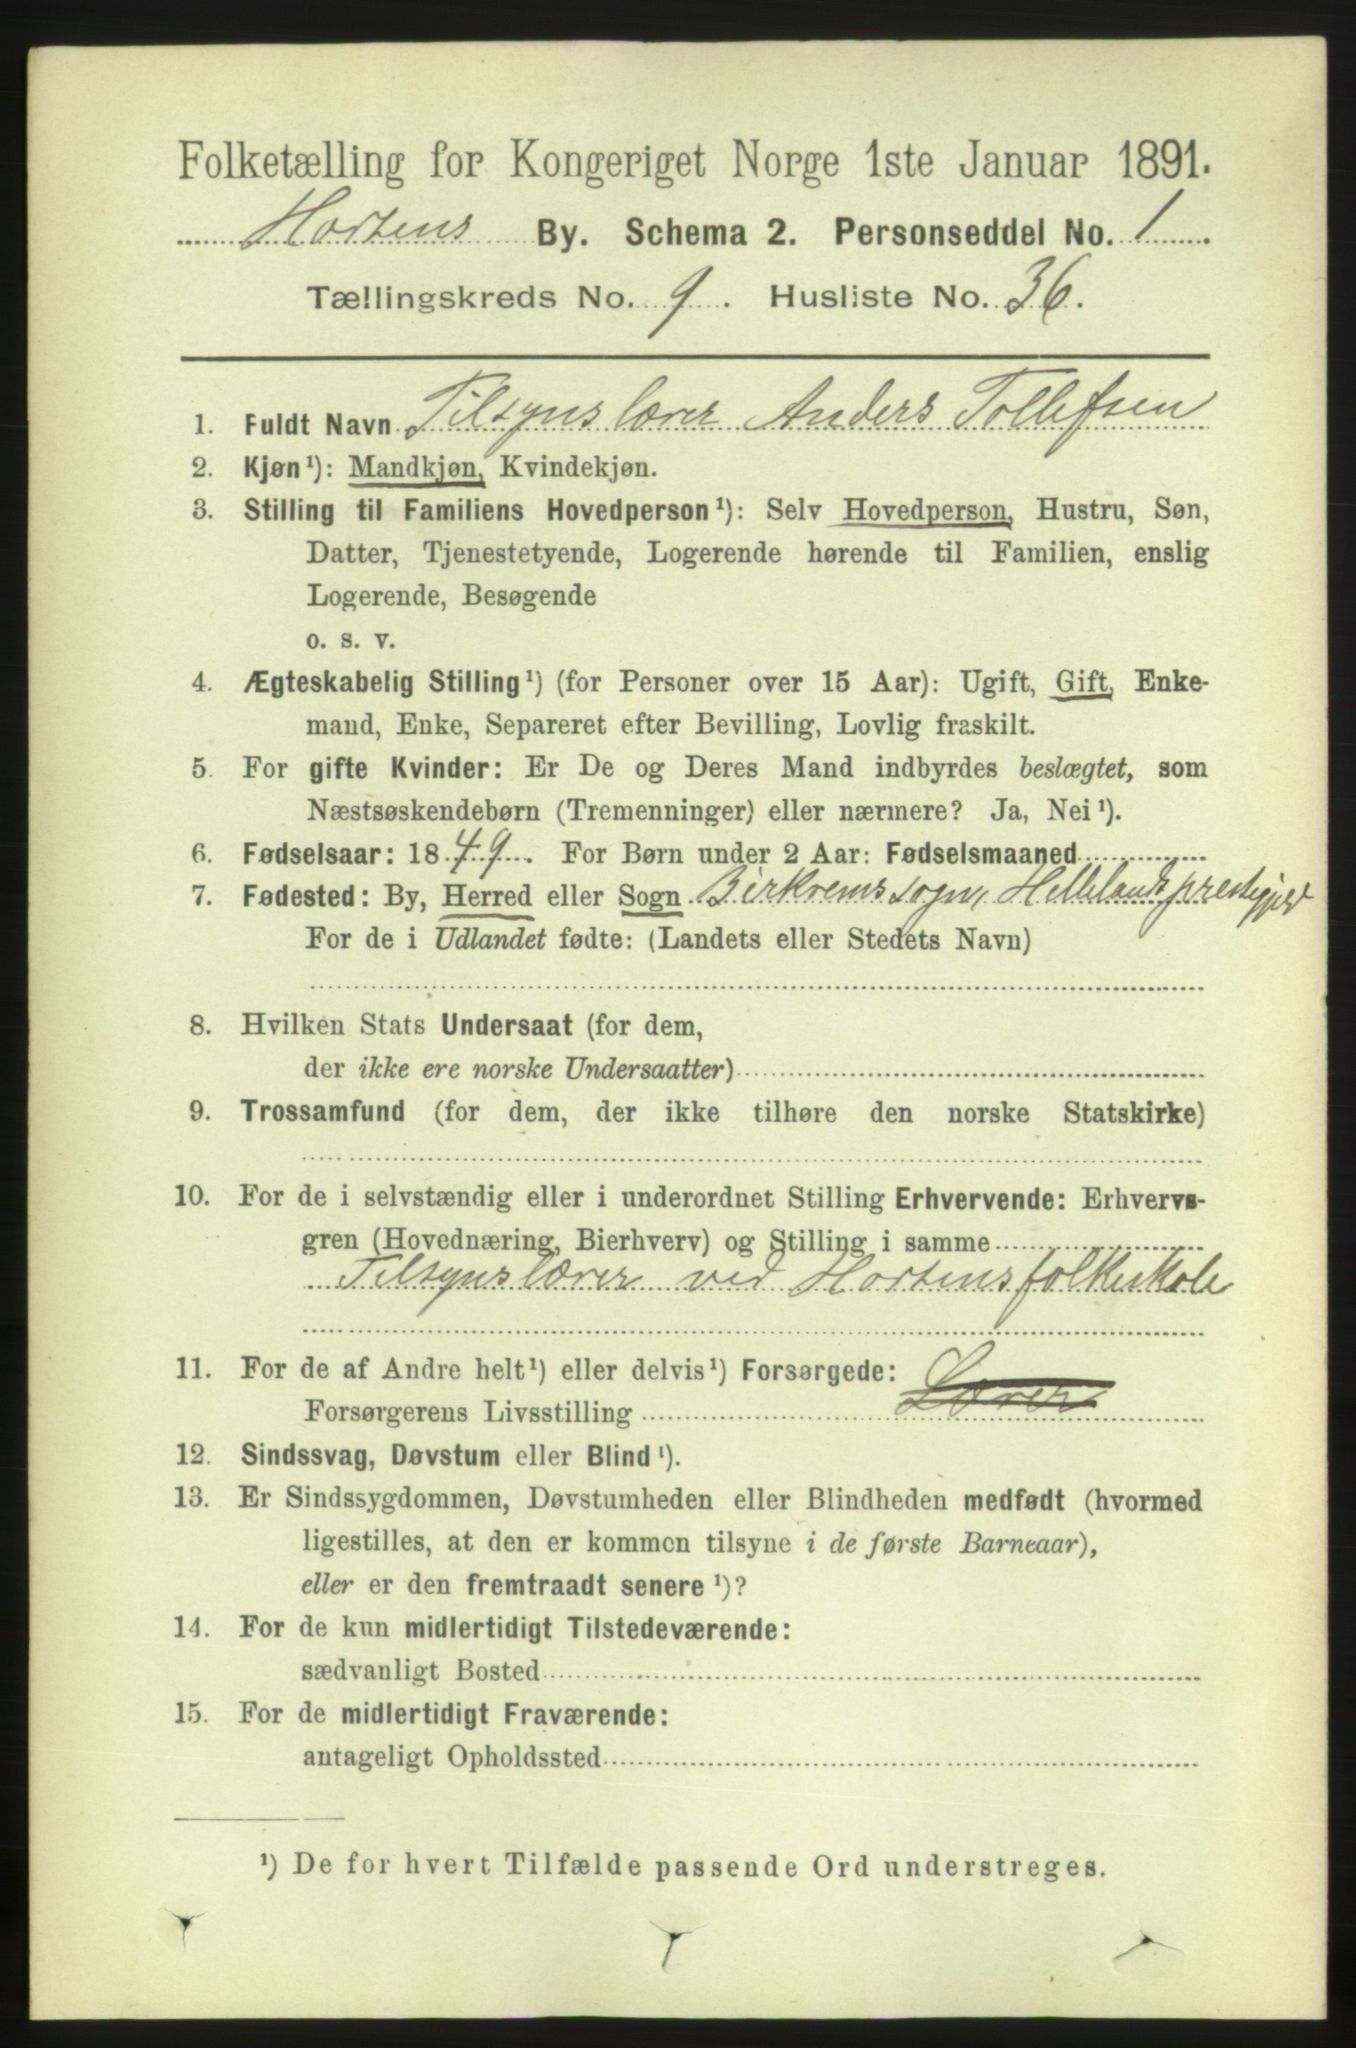 Folketælling for Kongeriget Norge 1ste Januar 1891.
Hortens By. Schema 2. Personseddel No. 1
Tællingskreds No. 9. Husliste No. 36.
1. Fuldt Navn Tilsynslærer Anders Tollefsen
2. Kjøn¹): Mandkjøn, Kvindekjøn.
3. Stilling til Familiens Hovedperson¹): Selv Hovedperson, Hustru, Søn,
Datter, Tjenestetyende, Logerende hørende til Familien, enslig
Logerende, Besøgende
o. s. v.
4. Ægteskabelig Stilling¹) (for Personer over 15 Aar): Ugift, Gift, Enke-
mand, Enke, Separeret efter Bevilling, Lovlig fraskilt.
5. For gifte Kvinder: Er De og Deres Mand indbyrdes beslægtet, som
Næstsøskendebørn (Tremenninger) eller nærmere? Ja, Nei¹).
6. Fødselsaar: 1849. For Børn under 2 Aar: Fødselsmaaned
7. Fødested: By, Herred eller Sogn Birkrems sogn, Hellelands prestegjeld
For de i Udlandet fødte: (Landets eller Stedets Navn)
8. Hvilken Stats Undersaat (for dem,
der ikke ere norske Undersaatter)
9. Trossamfund (for dem, der ikke tilhøre den norske Statskirke)
10. For de i selvstændig eller i underordnet Stilling Erhvervende: Erhvervs-
gren (Hovednæring, Bierhverv) og Stilling i samme
Tilsynslærer ved Hortens folkeskole
11. For de af Andre helt¹) eller delvis¹) Forsørgede:
Forsørgerens Livsstilling Lærer
12. Sindssvag, Døvstum eller Blind¹).
13. Er Sindssygdommen, Døvstumheden eller Blindheden medfødt (hvormed
ligestilles, at den er kommen tilsyne i de første Barneaar),
eller er den fremtraadt senere¹)?
14. For de kun midlertidigt Tilstedeværende:
sædvanligt Bosted
15. For de midlertidigt Fraværende:
antageligt Opholdssted
¹) De for hvert Tilfælde passende Ord understreges.